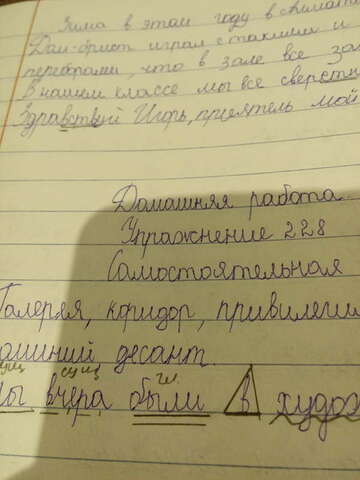 Зима в этом году в
Дом-брист играл с такими и
переборами, что в зале все за
в нашем классе мы все сверстн
Здравствуй Игорь, приятель мой
Домашняя работа.
Упражнение 228
Самостоятельная
Галерея, коридор, привилеги
ашиний десант.
сущ сущ гл.
ы вчера были в худож